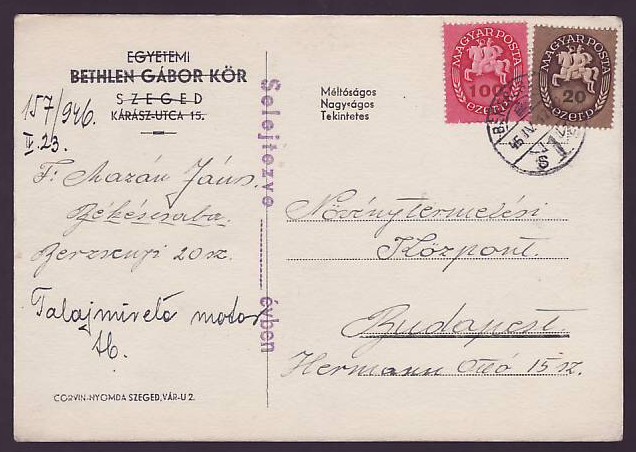 EGYETEMI
BETHLEN GÁBOR KÖR
SZEGED
KÁRÁSZ-UTCA 15.
157/946.
23.
F: Mazán János.
Békéscsaba.
Berzsenyi 20 sz.
Talajmivelő motor
CORVIN-NYOMDA SZEGED, VÁR-U 2.
Selejtezve évben
Méltóságos
Nagyságos
Tekintetes
MAGYAR POSTA
100
ezer P
MAGYAR POSTA
20
ezer P
Növénytermelési
Központ.
Budapest.
Hermann Ottó 15 sz.